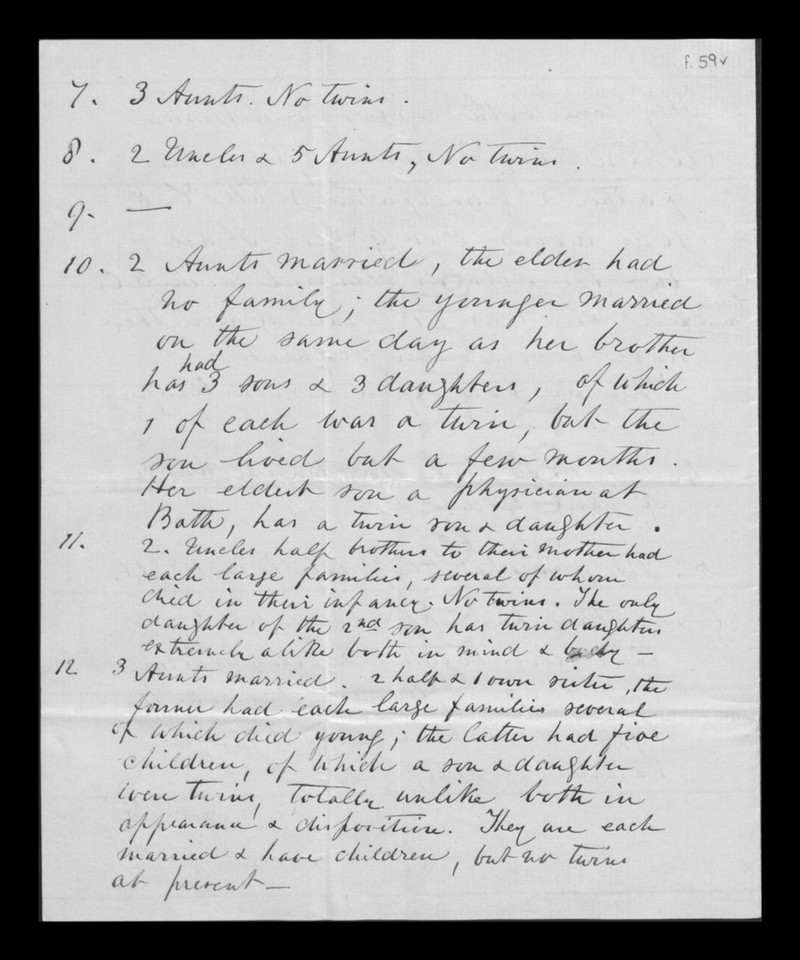 f. 59v
7. 3 Aunts. No twins.
8. 2 Uncles & 5 Aunts, No twins.
9. —
10. 2 Aunts married, the elder had
no family; the younger married
on the same day as her brother
had
has 3 sons & 3 daughters, of which
1 of each was a twin, but the
son lived but a few months.
Her eldest son a physician at
Bath, has a twin son & daughter.
11. 2. Uncles half brothers to their mother had
each large families, several of whom
died in their infancy. No twins. The only
daughter of the 2nd son has twin daughters
extremely alike both in mind & body —
12. 3 Aunts married. 2 half & 1 own sister, the
former had each large families several
of which died young; the latter had five
children, of which a son & daughter
were twins, totally unlike both in
appearance & disposition. They are each
married & have children, but no twins
at present —